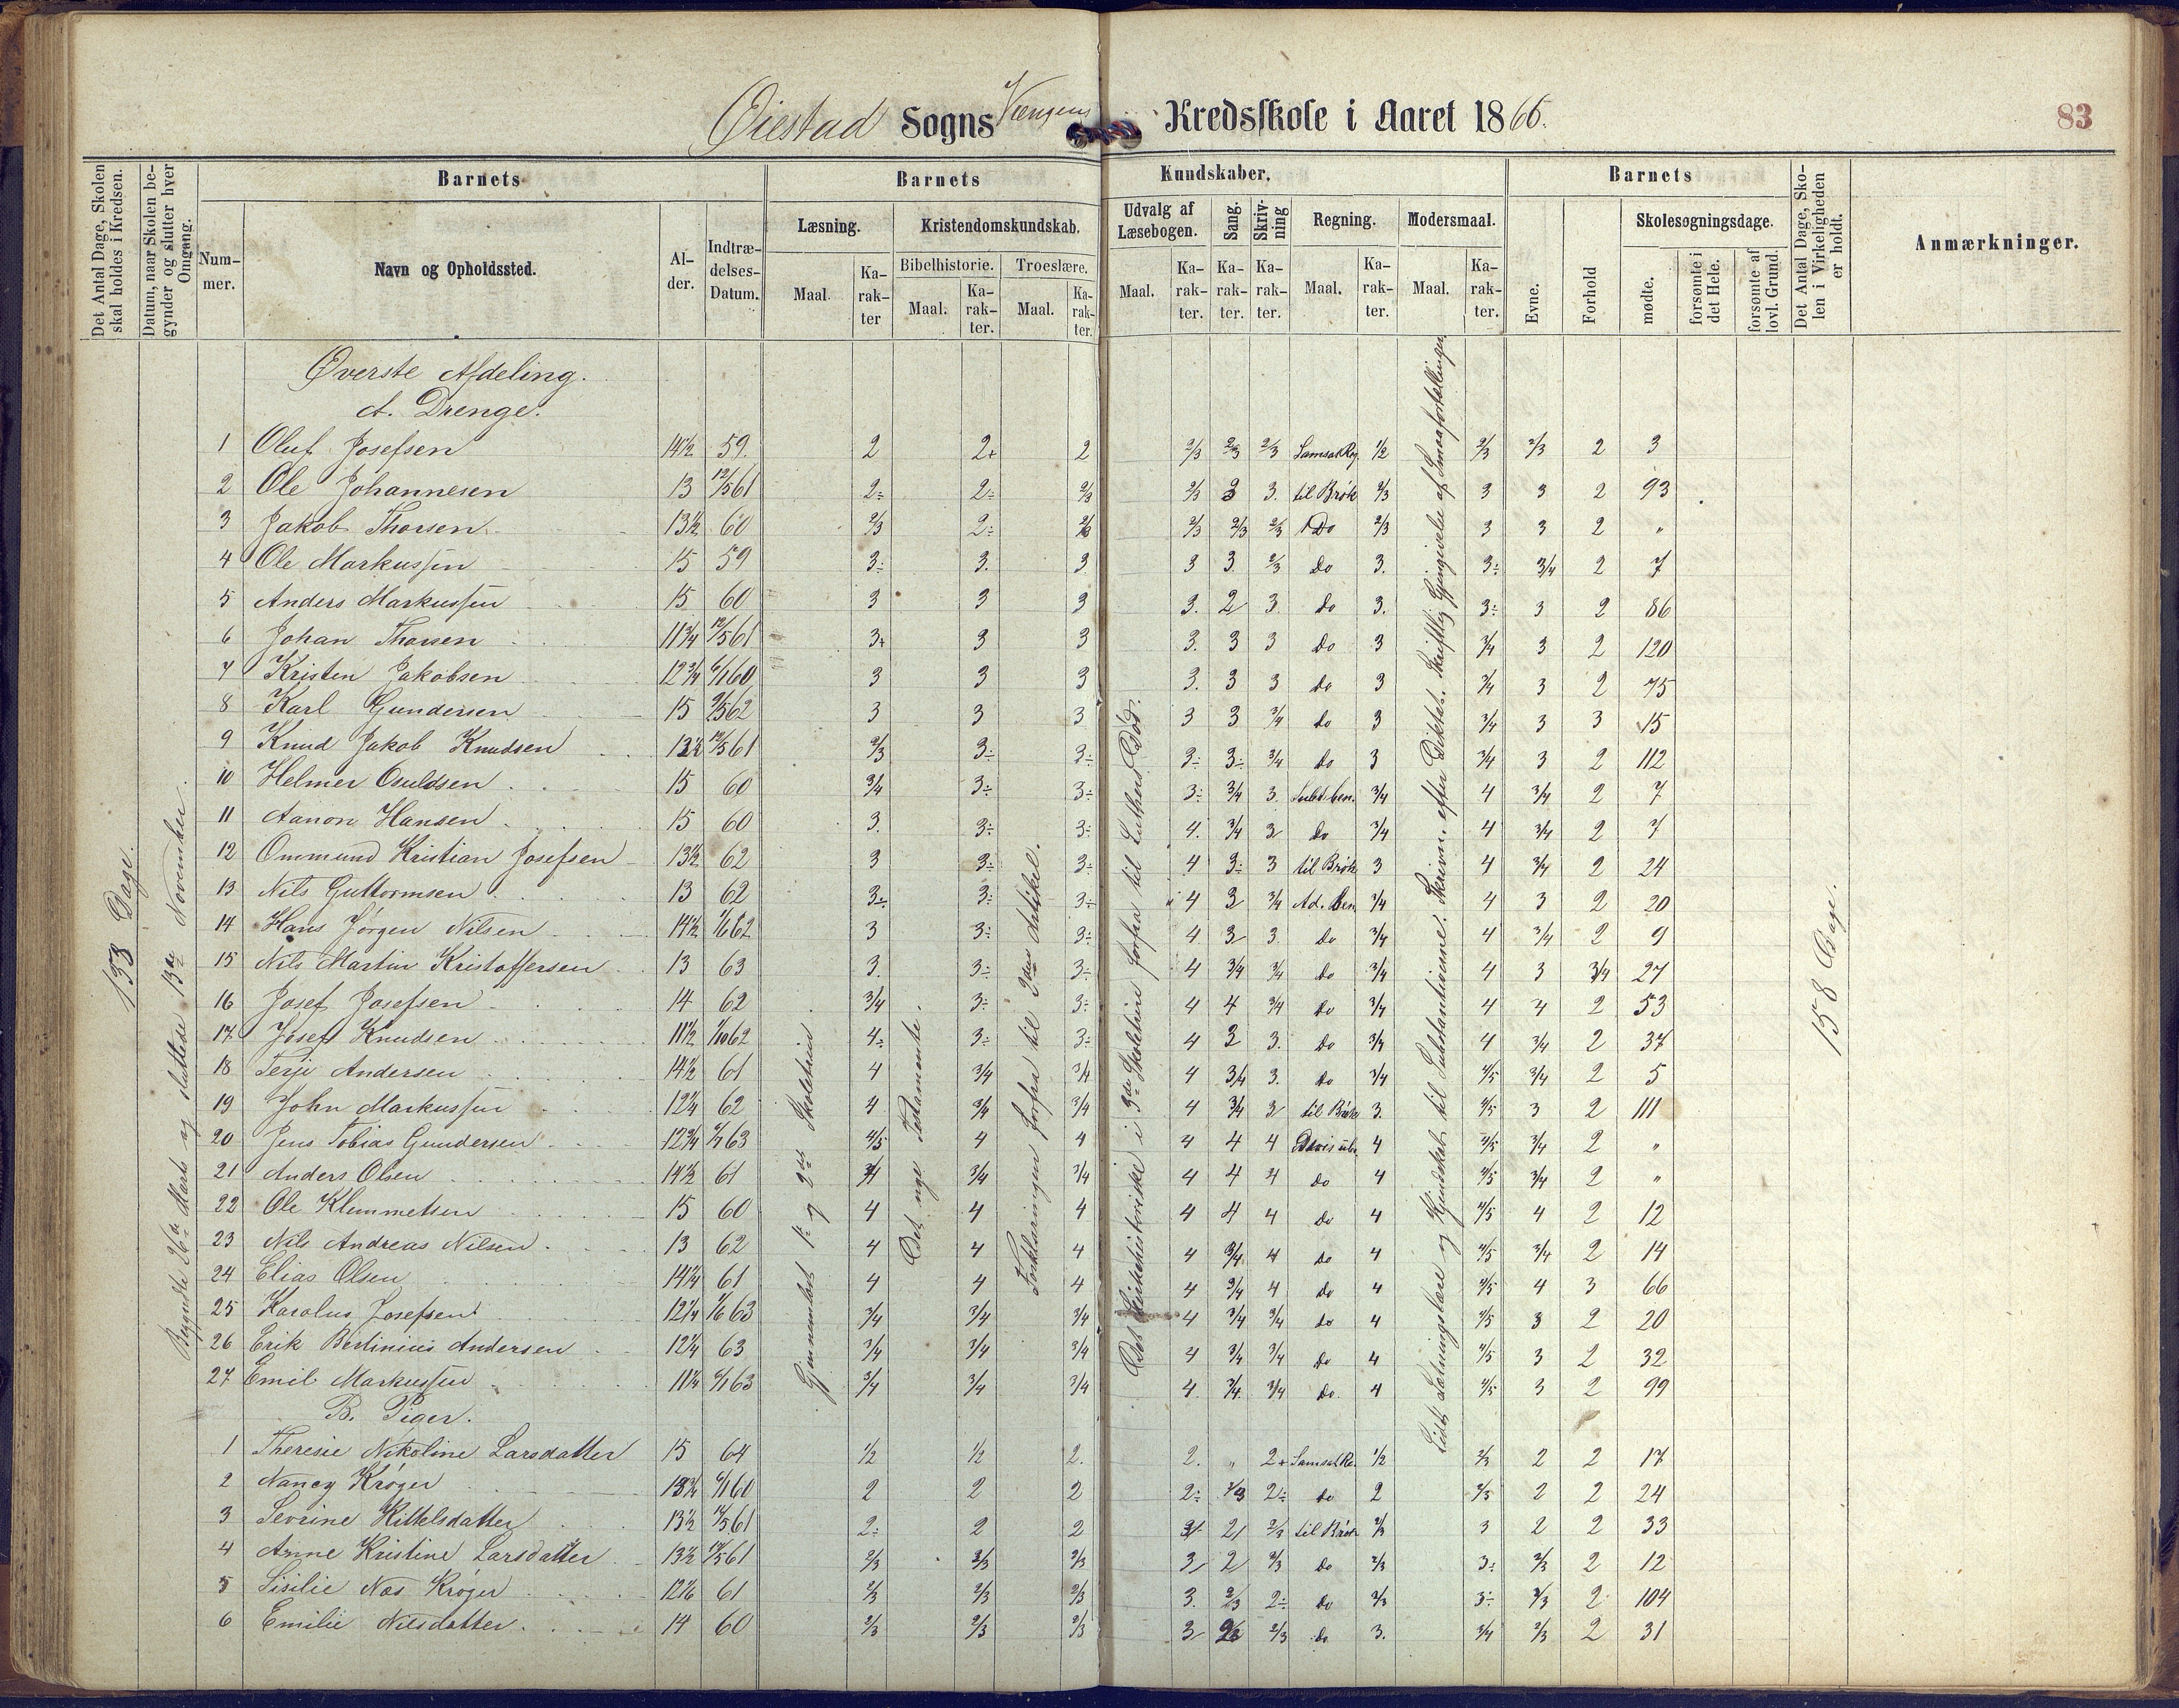 Øiestad Sogns Vængens Kredsskole i Aaret 1866.
83
Det Antal Dage, Skolen skal holdes i Kredsen.
Datum, naar Skolen begynder og slutter hver Omgang.
Barnets
Barnets
Kundskaber.
Barnets
Det Antal Dage, Skolen i Virkeligheden er holdt.
Anmærkninger.
Nummer.
Navn og Opholdssted.
Alder.
Indtrædelses-Datum.
Læsning.
Kristendomskundskab.
Udvalg af Læsebogen.
Sang.
Skrivning
Regning.
Modersmaal.
Evne.
Forhold
Skolesøgningsdage.
Maal.
Karakter
Bibelhistorie.
Troeslære.
Maal.
Karakter.
Maal.
Karakter.
Maal.
Karakter.
Karakter.
Karakter.
Maal.
Karakter.
Maal.
Karakter.
mødte.
forsømte i det Hele.
forsømte af lovl. Grund.
133 Dage.
Begyndte 26de Marts og sluttede 13de November.
Gjennemlæst 1ste og 2den Skoletrin.
Det nye Testamente.
Forklaringen forfra til 3die Artikel.
Det Kirkehistoriske i 3die Skoletrin forfra til Luthers Død.
Lidt Sætningslære og Kjendskab til Substantiverne. Skrivn. efter Diktat. Skriftlig Gjengivelse af Smaafortællinger
158 Dage.
Øverste Afdeling.
A. Drenge.
1 Oluf Josefsen 14½ 59. 2 2+ 2 2/3 2/3 2/3 Samsat Reg. 1/2 2/3 2/3 2 3
2 Ole Johannesen 13 12/5 61 2÷ 2÷ 2/3 2/3 3 3. til Brøk 2/3 3 3 2 93
3 Jakob Thorsen 13½ 60 2/3 2÷ 2/3 2/3 2/3 2/3 Do 2/3 3 3 2 "
4 Ole Markussen 15 59 3÷ 3. 3 3 3 2/3 Do 3. 3÷ 3/4 2 7
5 Anders Markussen 15 60 3 3 3 3. 2 3 Do 3. 3÷ 3 2 86
6 Johan Thorsen 11¾ 12/5 61 3+ 3 3 3. 3 3 Do 3 3/4 3 2 120
7 Kristen Jakobsen 12¾ 6/1 60 3 3 3 3. 3 3 Do 3 3/4 3 2 75
8 Karl Gundersen 15 9/5 62 3 3 3 3 3 3/4 Do 3 3/4 3 3 15
9 Knud Jakob Knudsen 13½ 12/5 61 2/3 3÷ 3÷ 3÷ 3÷ 3/4 Do 3 3/4 3 2 112
10 Helmer Osuldsen 15 60 3/4 3÷ 3÷ 3÷ 3/4 3. Subt. ben. 3/4 4 3/4 2 7
11 Aanon Hansen 15 60 3. 3÷ 3÷ 4. 3/4 3 Do 3/4 4 3/4 2 7
12 Ommund Kristian Josefsen 13½ 62 3 3÷ 3÷ 4 3÷ 3 til Brøk 3 4 3/4 2 24
13 Nils Guttormsen 13 62 3÷ 3÷ 3÷ 4 3 3/4 Ad. ben 3/4 4 3 2 20
14 Hans Jørgen Nilsen 14½ 1/6 62 3 3÷ 3÷ 4 3 3. Do 3/4 4 3/4 2 9
15 Nils Martin Kristoffersen 13 63 3. 3÷ 3÷ 4 3/4 3/4 Do 3/4 4 3 3/4 27
16 Josef Josefsen 14 62 3/4 3÷ 3÷ 4 4 3/4 Do 3/4 4 4 2 53
17 Josef Knudsen 11½ 1/10 62 4÷ 3÷ 3÷ 4 3 3. Do 3/4 4 3/4 2 37
18 Terje Andersen 14½ 61 4 3/4 3/4 4 3/4 3. Do 3/4 4/5 3/4 2 5
19 John Markussen 12¼ 62 4 3/4 3/4 4 3/4 3 til Brøk 3. 4/5 3 2 111
20 Jens Tobias Gundersen 12¾ 63 4/5 4 4 4 4 4 4 4/5 3/4 2 "
21 Anders Olsen 14½ 61 3/4 3/4 3/4 4 4 4 Do 4 4/5 3/4 2 "
22 Ole Klemmetsen 15 60 4 4 4 4 4 4 Do 4 4/5 4 2 12
23 Nils Andreas Nilsen 13 62 4 4 4 4 3/4 4 Do 4 4/5 3/4 2 14
24 Elias Olsen 14¼ 61 4 4 4 4 3/4 4 Do 4 4/5 4 3 66
25 Karolus Josefsen 12¼ 1/6 63 3/4 3/4 3/4 4 3/4 3/4 Do 4 4/5 3 2 20
26 Erik Bertinius Andersen 12¼ 63 3/4 3/4 3/4 4 3/4 3/4 Do 4 4/5 3 2 32
27 Emil Markussen 11¼ 6/1 63 3/4 3/4 3/4 4. 3/4 3/4 Do. 4 4/5 3 2 99
B. Piger.
1 Theresie Nikoline Larsdatter 15 64 1/2 1/2 2. 2. " 2+ Samsat Re. 1/2 2/3 2 2 17
2 Nancy Krøger 13¾ 6/1 60 2 2 2 2÷ 2/3 2÷ Do 2 2/3 2 2 24
3 Sevrine Kittelsdatter 13½ 12/5 61 2÷ 2 2 3 2 2/3 til Brøk 2/3 3 2 2 33
4 Anne Kristine Larsdatter 13½ 12/5 61 2/3 2/3 2/3 3 2 2/3 Do 2/3 3÷ 2/3 2 12
5 Sisilie Næs Krøger 12 61 2/3 2/3 2/3 3. 2/3 2÷ Do 2/3 3÷ 2/3 2 104
6 Emilie Nilsdatter 14 60 2/3 2/3 2/3 3 2/3 2/3 Do 3. 3/4 2/3 2 31